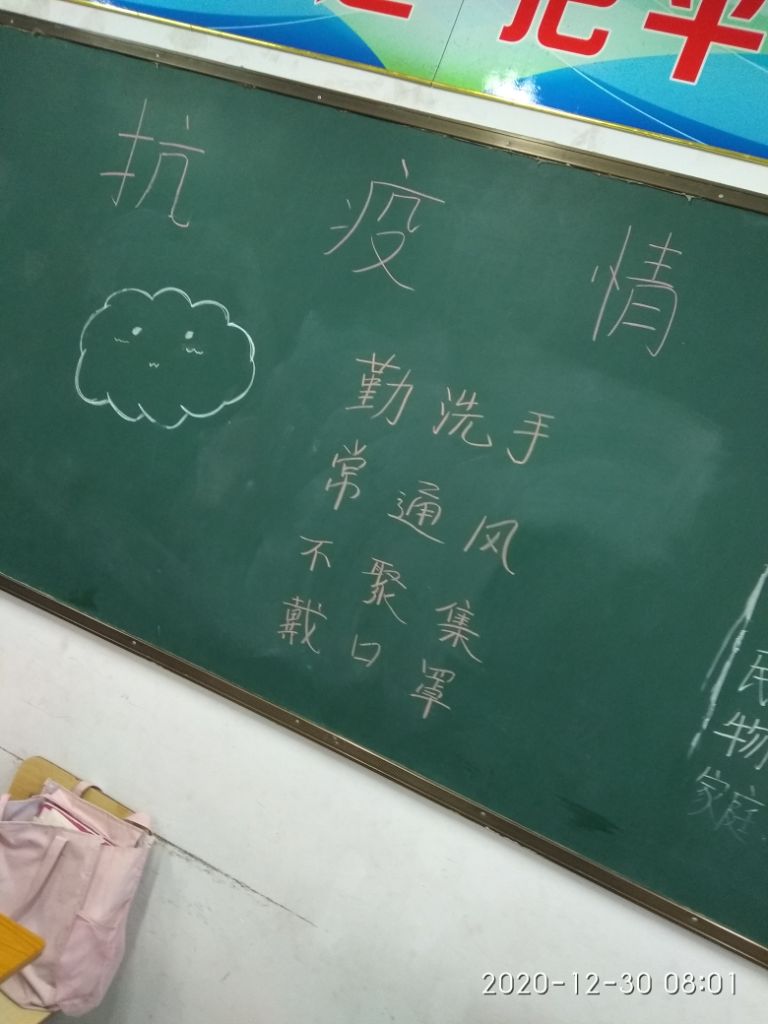 抗疫情
勤洗手
常通风
不聚集
戴口罩
民
物
家庭
2020-12-30 08:01